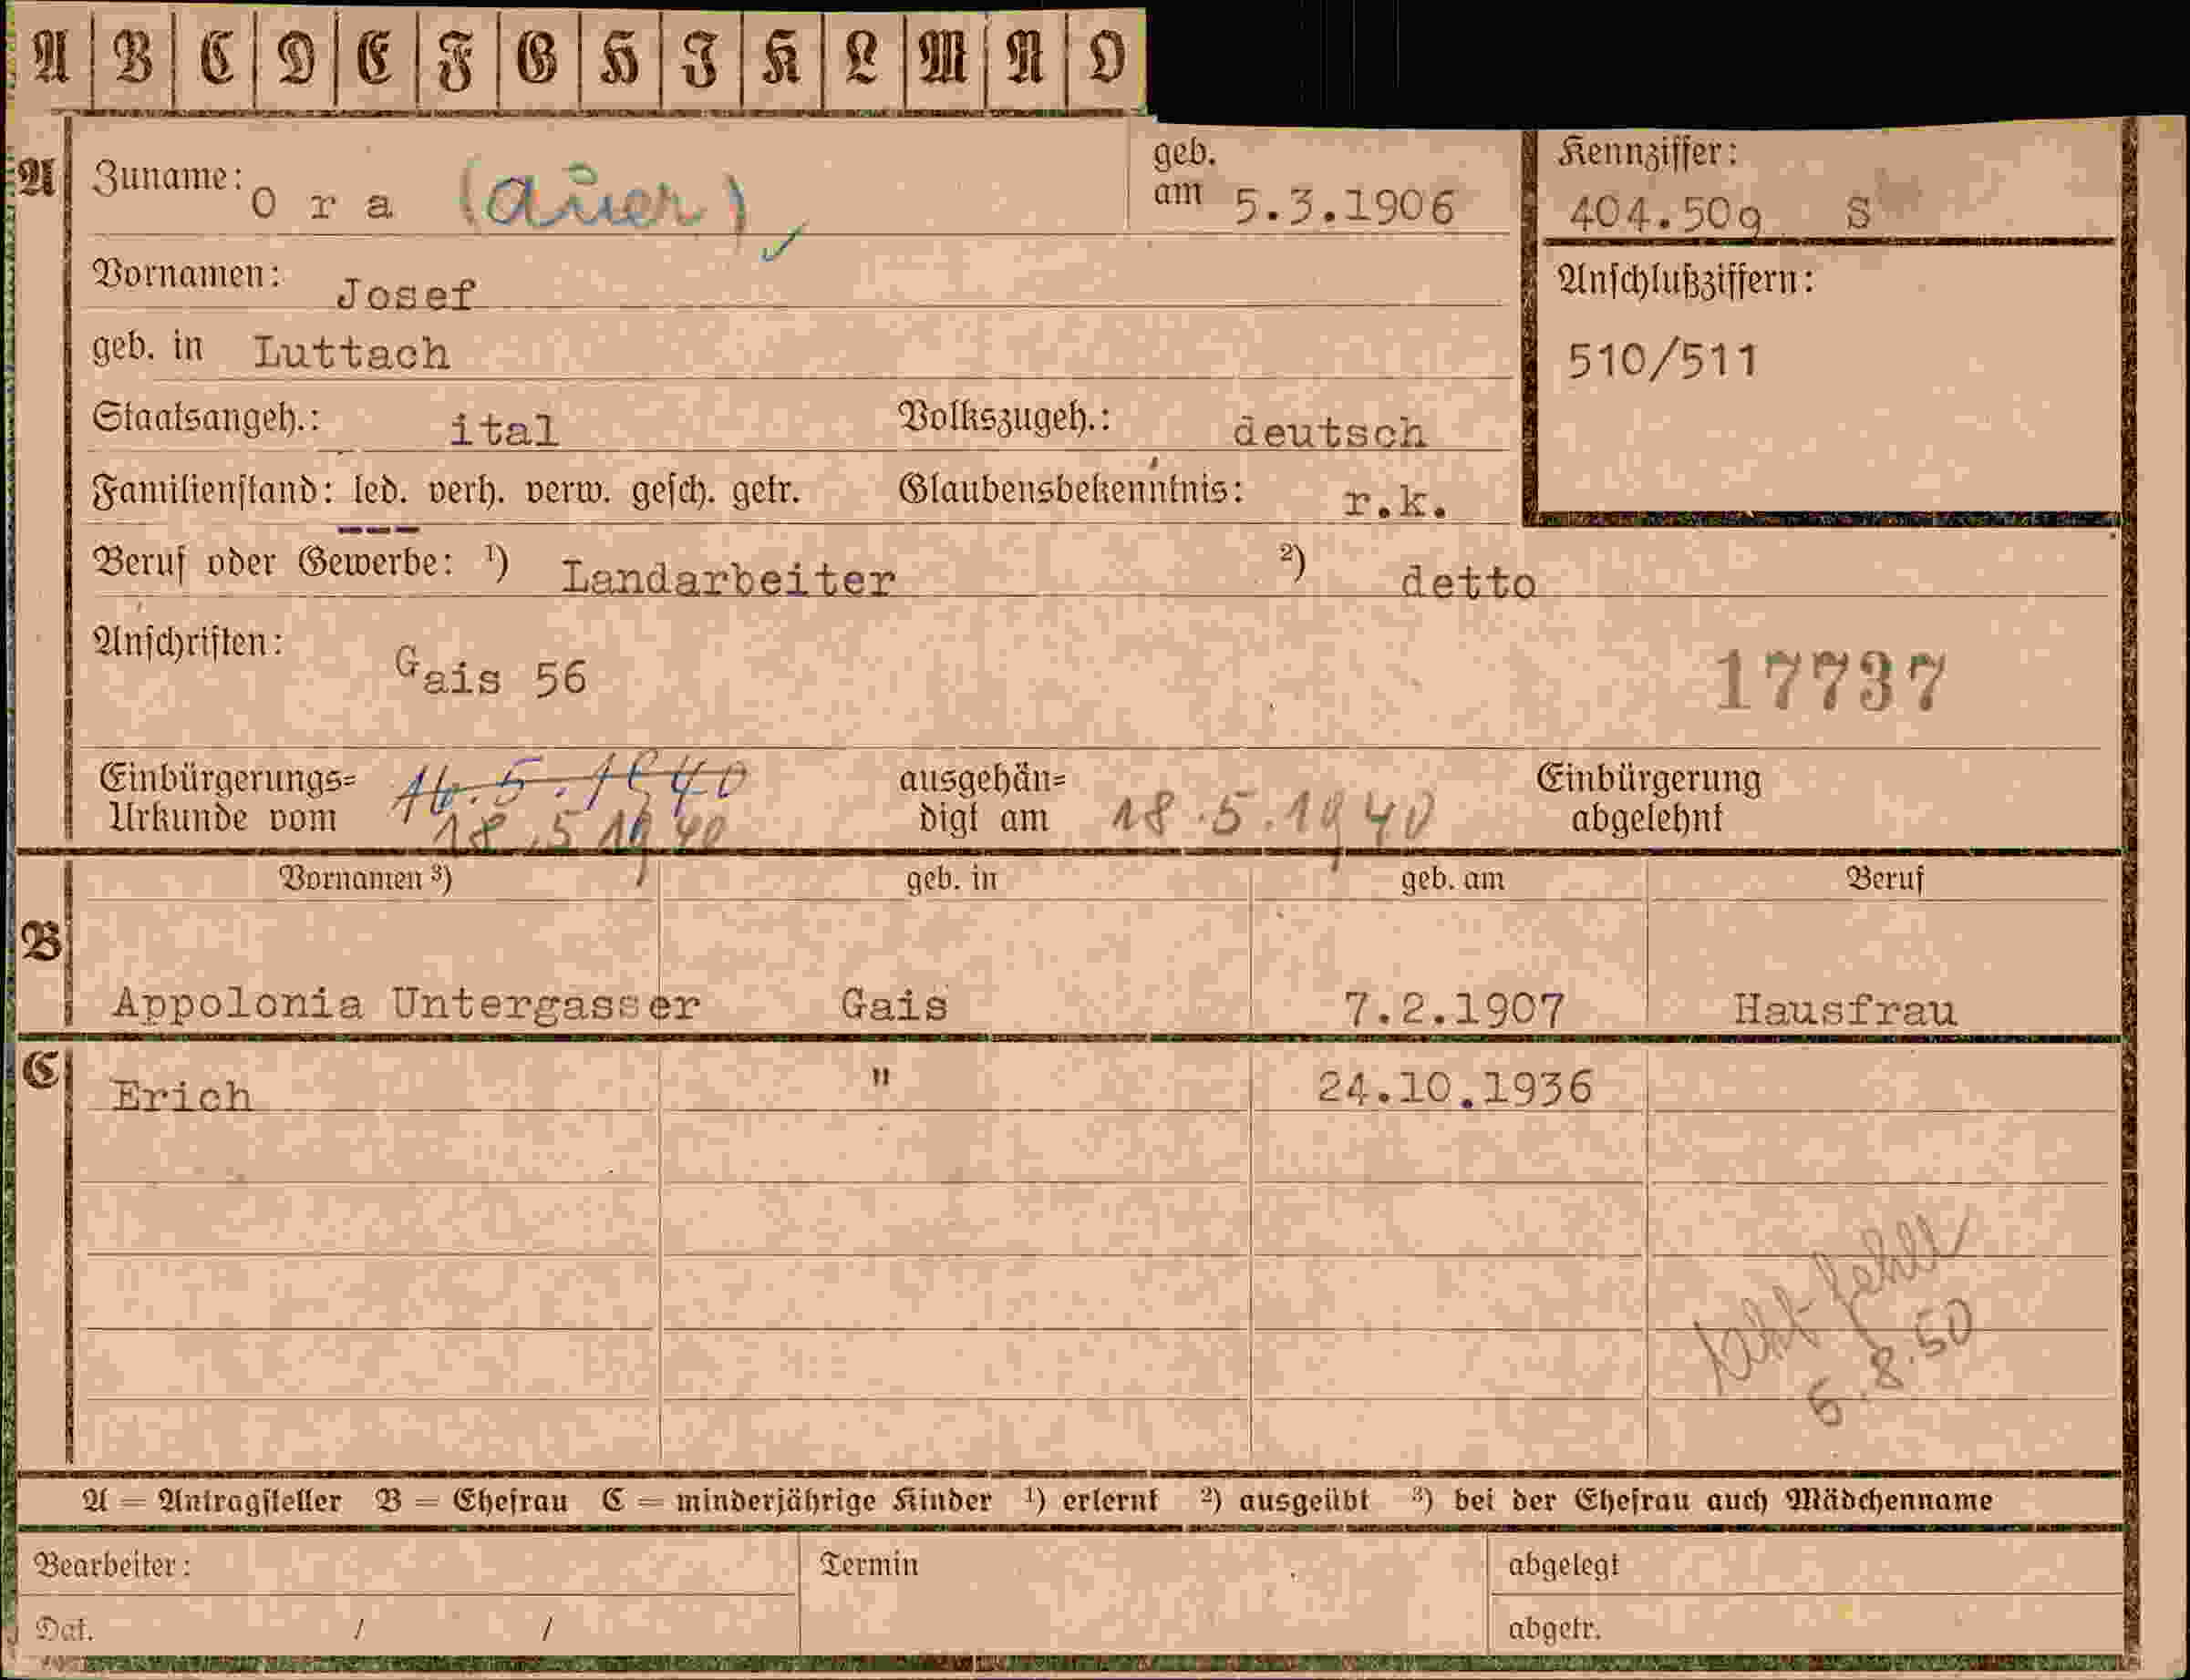 A B C D E F G H I K L M N O
A Zuname: O r a (Auer) ✓ geb. am 5.3.1906
Kennziffer: 404.509 S
Vornamen: Josef
Anschlußziffern:
geb. in Luttach
510/511
Staatsangeh.: ital Volkszugeh.: deutsch
Familienstand: led. verh. verw. gesch. getr. Glaubensbekenntnis: r.k.
Beruf oder Gewerbe: ¹) Landarbeiter ²) detto
Anschriften: Gais 56
17737
Einbürgerungs= 16.5.1940 ausgehän= Einbürgerung
Urkunde vom 18.5 1940 digt am 18.5.1940 abgelehnt
Vornamen ³) geb. in geb. am Beruf
B
Appolonia Untergasser Gais 7.2.1907 Hausfrau
C Erich " 24.10.1936
fehlt
6.8.50
A = Antragsteller B = Ehefrau C = minderjährige Kinder ¹) erlernt ²) ausgeübt ³) bei der Ehefrau auch Mädchenname
Bearbeiter: Termin abgelegt
Dat. / / abgetr.